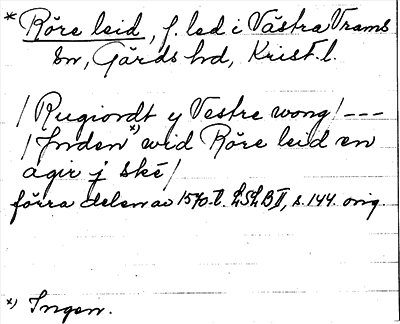 * Röre leid, f. led i Västra Vrams
sn, Gärds hd, Krist. l.
/ Rugiordt y Vestre wong / ---
/ Jnden x) wid Röre leid en
agir j ské /
förra delen av 1570-t. LSLB II, s. 144. orig.
x) Ingen.